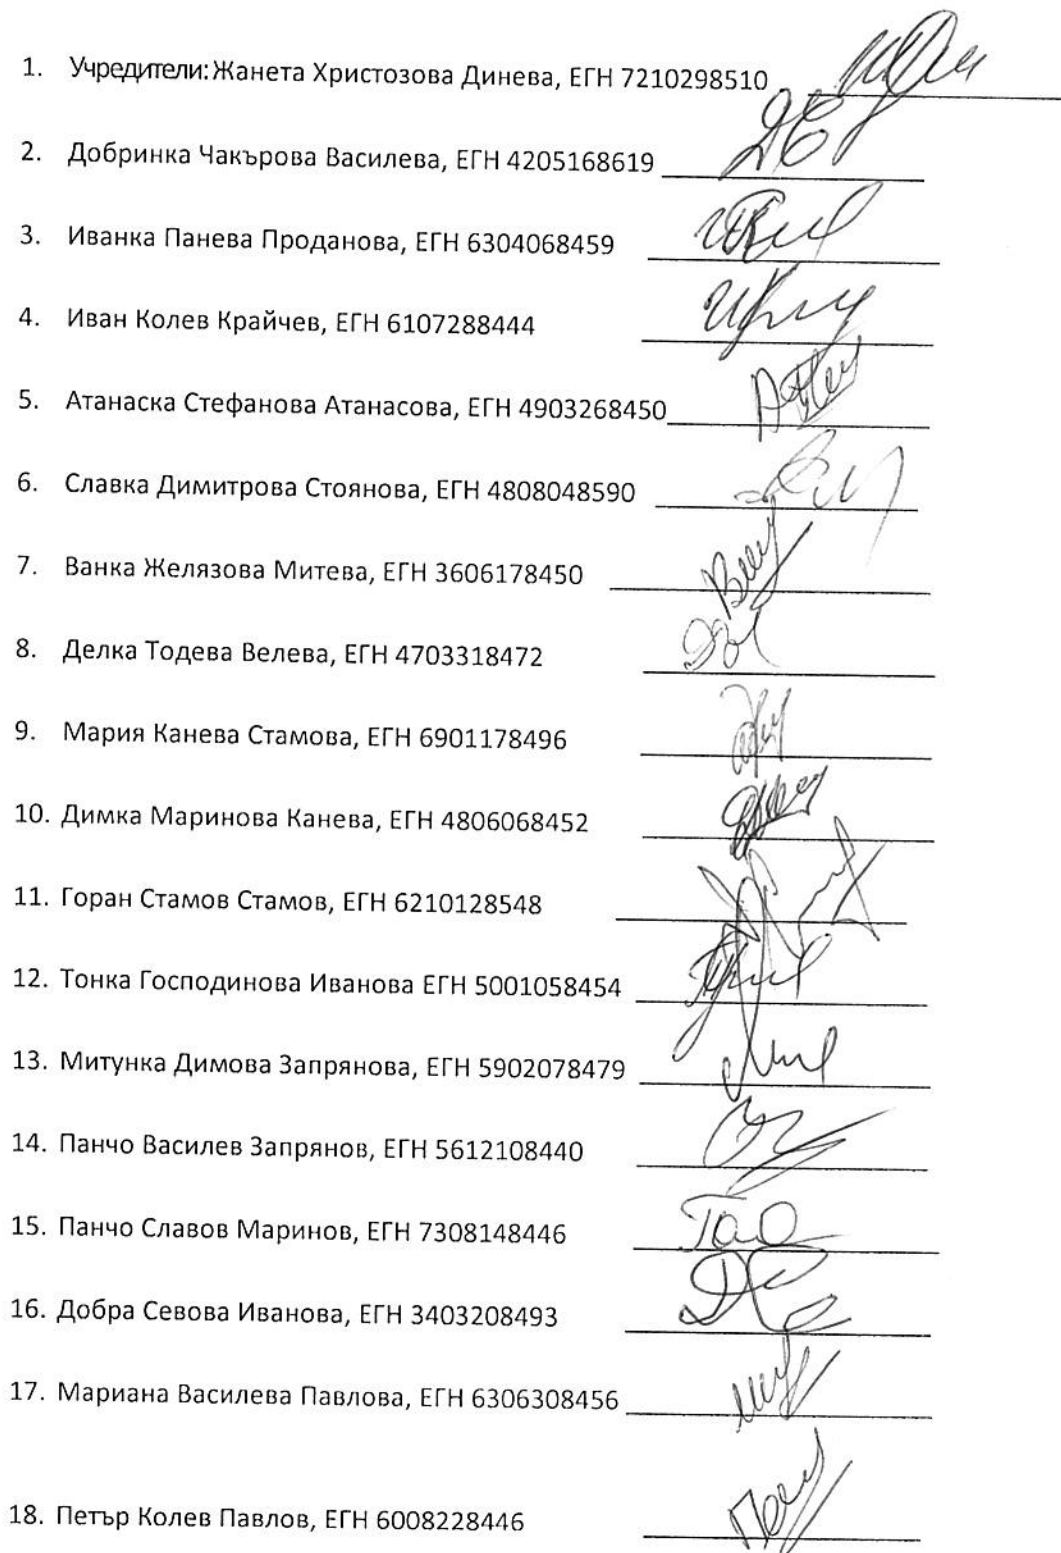 1. Учредители: Жанета Христозова Динева, ЕГН 7210298510
2. Добринка Чакърова Василева, ЕГН 4205168619
3. Иванка Панева Проданова, ЕГН 6304068459
4. Иван Колев Крайчев, ЕГН 6107288444
5. Атанаска Стефанова Атанасова, ЕГН 4903268450
6. Славка Димитрова Стоянова, ЕГН 4808048590
7. Ванка Желязова Митева, ЕГН 3606178450
8. Делка Тодева Велева, ЕГН 4703318472
9. Мария Канева Стамова, ЕГН 6901178496
10. Димка Маринова Канева, ЕГН 4806068452
11. Горан Стамов Стамов, ЕГН 6210128548
12. Тонка Господинова Иванова ЕГН 5001058454
13. Митунка Димова Запрянова, ЕГН 5902078479
14. Панчо Василев Запрянов, ЕГН 5612108440
15. Панчо Славов Маринов, ЕГН 7308148446
16. Добра Севова Иванова, ЕГН 3403208493
17. Мариана Василева Павлова, ЕГН 6306308456
18. Петър Колев Павлов, ЕГН 6008228446